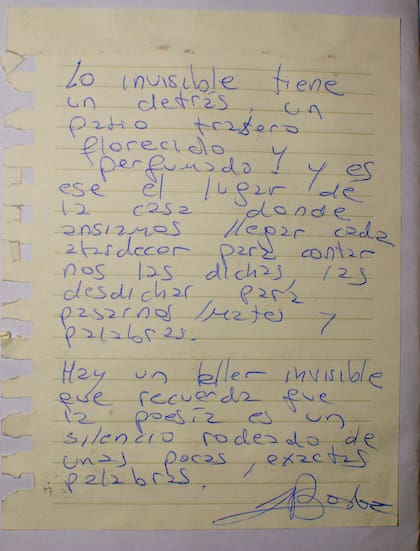 Lo invisible tiene
un detrás, un
patio trasero
florecido y
perfumado. y es
ese el lugar de
la casa donde
ansiamos llegar cada
atardecer para contar
nos las dichas las
desdichas para
pasarnos mates y
palabras.
Hay un taller invisible
que recuerda que
la poesía es un
silencio rodeado de
unas pocas, exactas
palabras.